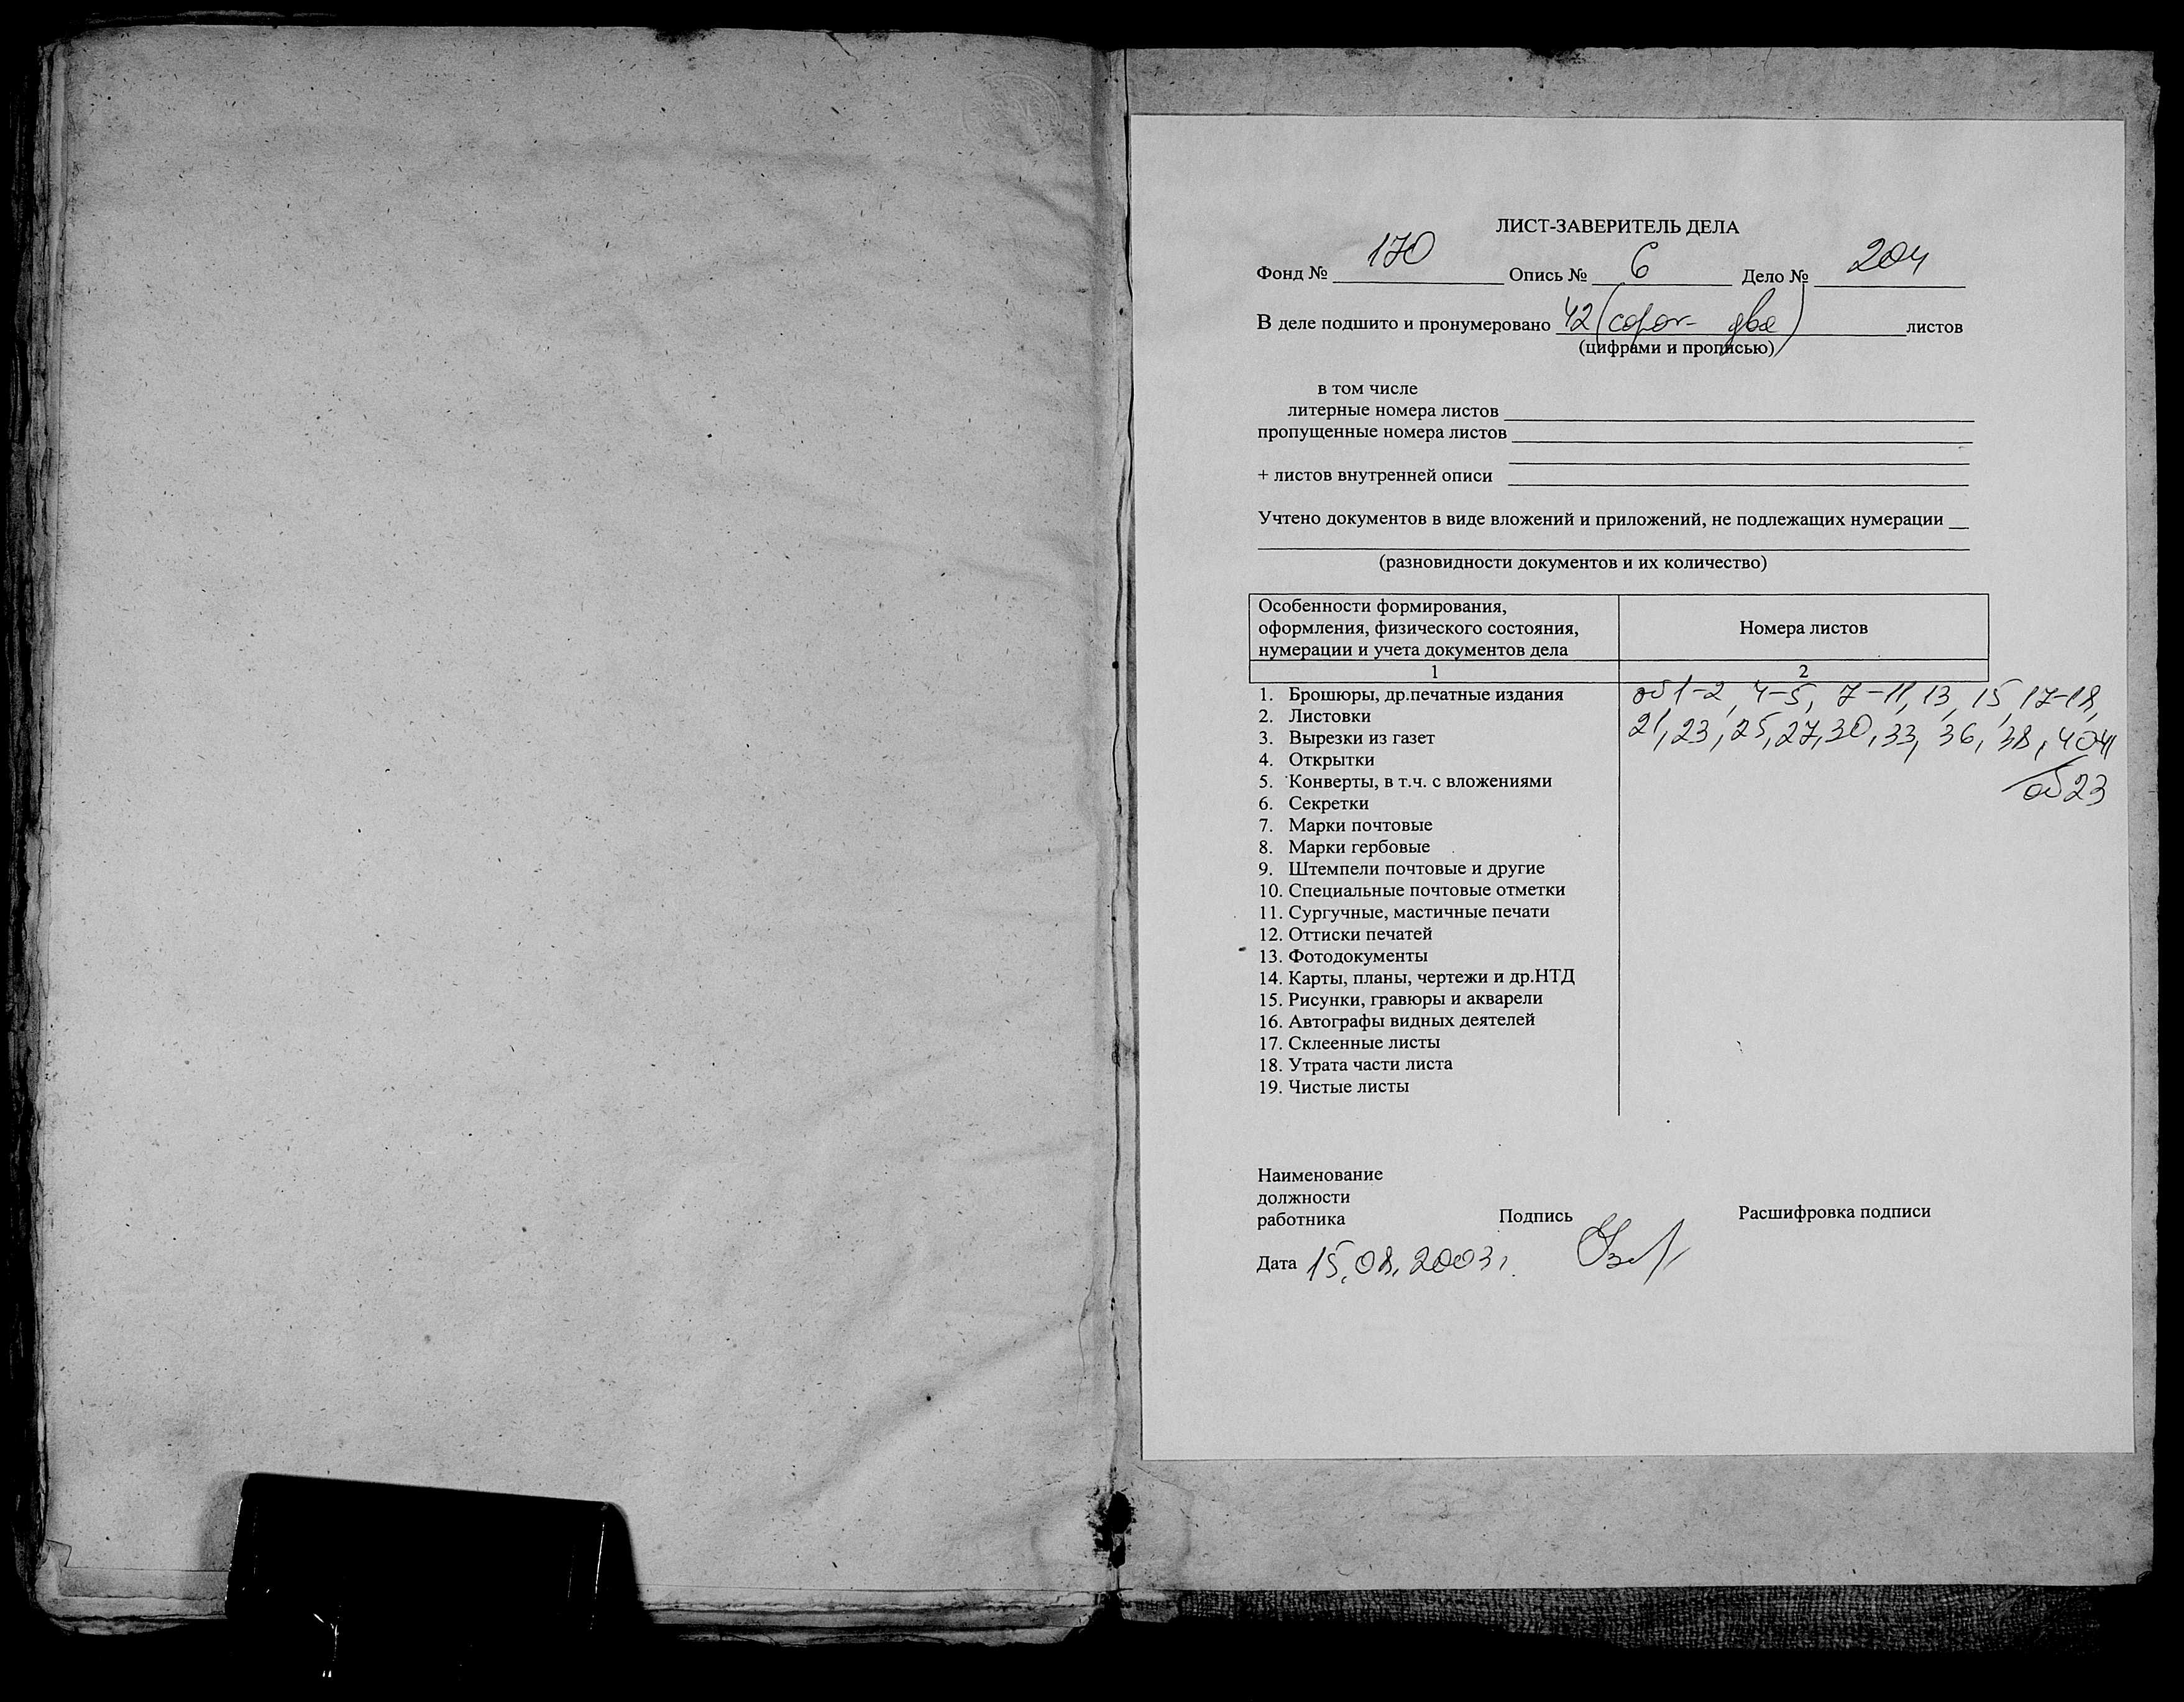 ЛИСТ-ЗАВЕРИТЕЛЬ ДЕЛА
Фонд № 170 Опись № 6 Дело № 204
В деле подшито и пронумеровано 42 (сорок два) листов
(цифрами и прописью)
в том числе
литерные номера листов
пропущенные номера листов
+ листов внутренней описи
Учтено документов в виде вложений и приложений, не подлежащих нумерации
(разновидности документов и их количество)
Особенности формирования,
оформления, физического состояния,
нумерации и учета документов дела
Номера листов
1 2
1. Брошюры, др.печатные издания об 1-2, 4-5, 7-11, 13, 15, 17-18,
2. Листовки 21, 23, 25, 27, 30, 33, 36, 38, 40
3. Вырезки из газет
4. Открытки
5. Конверты, в т.ч. с вложениями об 23
6. Секретки
7. Марки почтовые
8. Марки гербовые
9. Штемпели почтовые и другие
10. Специальные почтовые отметки
11. Сургучные, мастичные печати
12. Оттиски печатей
13. Фотодокументы
14. Карты, планы, чертежи и др.НТД
15. Рисунки, гравюры и акварели
16. Автографы видных деятелей
17. Склеенные листы
18. Утрата части листа
19. Чистые листы
Наименование
должности
работника Подпись Расшифровка подписи
Дата 15.08.2003г.